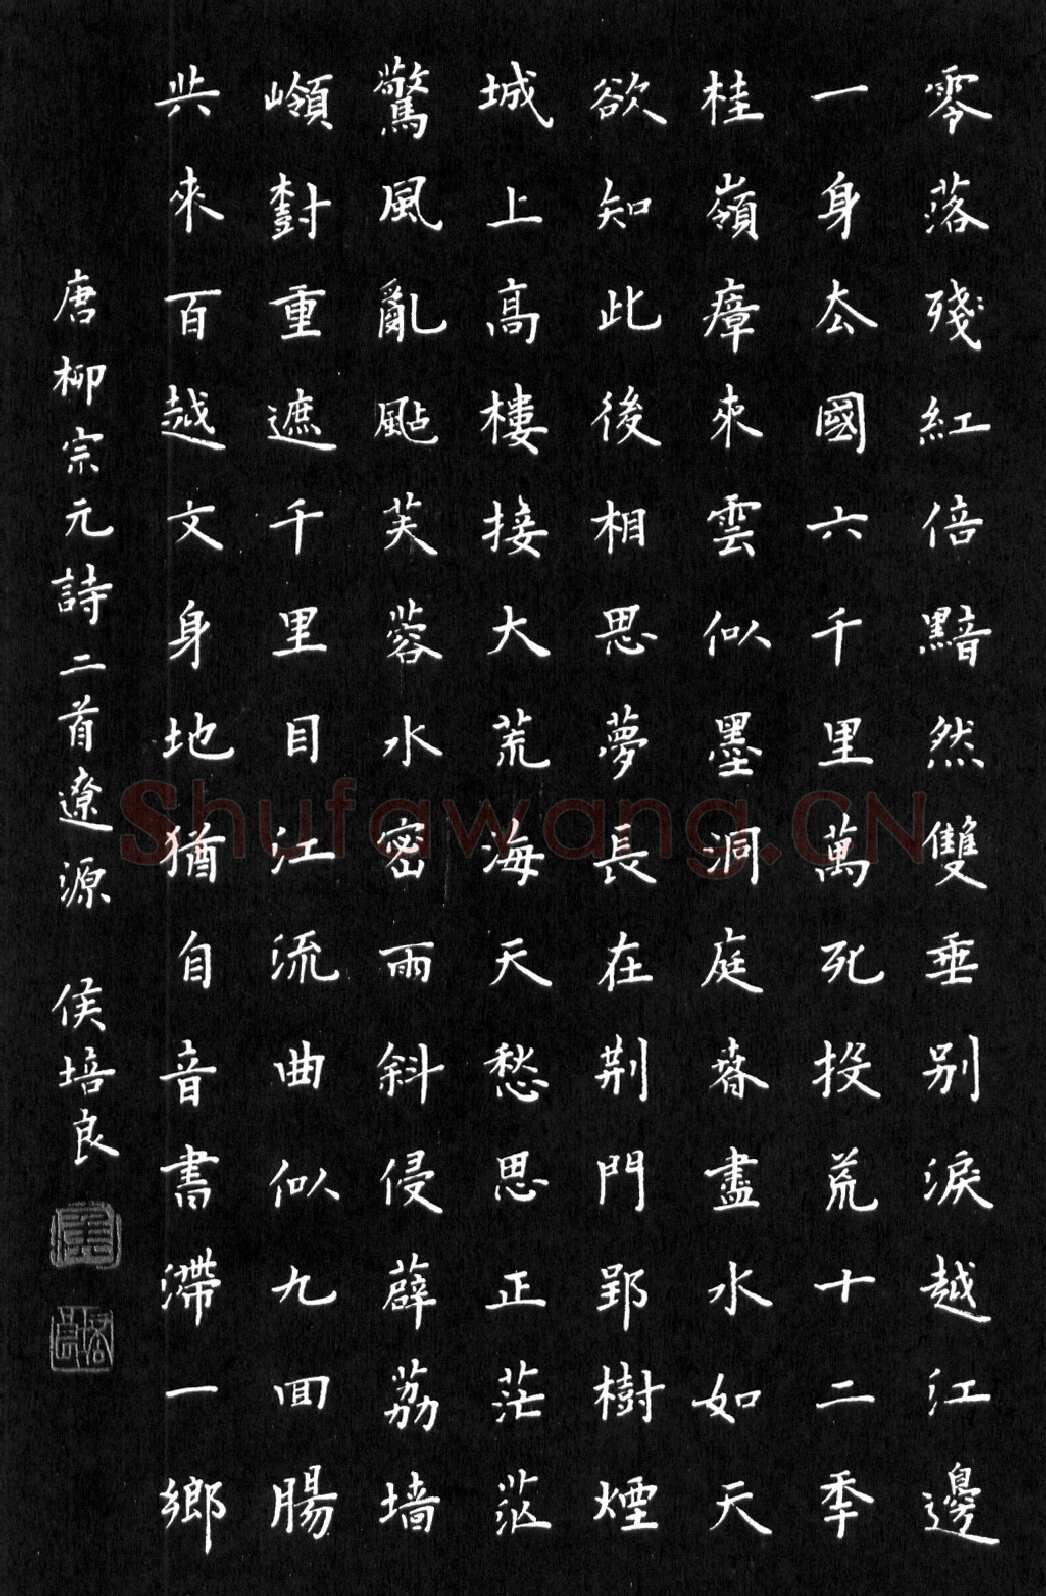 零落殘紅倍黯然雙垂别淚越江邊
一身去國六千里萬死投荒十二年
桂嶺瘴來雲似墨洞庭春盡水如天
欲知此後相思夢長在荆門郢樹煙
城上高樓接大荒海天愁思正茫茫
驚風亂颭芙蓉水密雨斜侵薜荔墙
嶺樹重遮千里目江流曲似九回腸
共來百越文身地猶自音書滯一鄉
唐柳宗元詩二首遼源 侯培良
Shufawang.CN